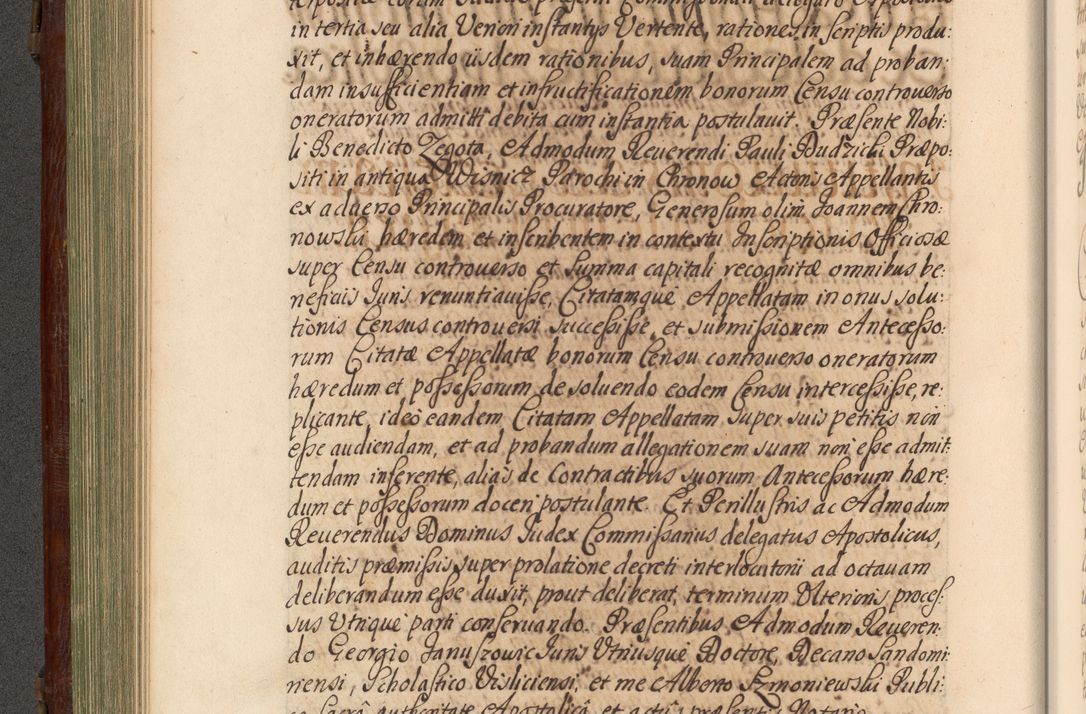 in tertia seu alia Venori instantys Vertente, rationes in scriptis produ:
xit, et inhærendo iisdem rationibus, suam Principalem ad proban:
dam insufficientiam et infructificationem bonorum Censu controverso
oneratorum admitti debita cum instantia postulavit. Præsente Nobi:
li Benedicto Zegota, Admodum Reverendi Pauli Dudzicki Præpo:
siti in antiqua Wisnicz Parochi in Chronow Actoris Appellantis
ex adverso Principalis Procuratore, Generosum olim Joannem Chro:
nowski hæredem et inscribentem in contextu Inscriptionis Officiosæ
super Censu controverso et Summa capitali recognitæ omnibus be:
neficiis Juris renuntiavisse, Citatamque Appellatam in onus solu:
tionis Census controversi successisse, et submissionem Antecesso:
rum Citatæ Appellatæ bonorum Censu controverso oneratorum
hæredum et possessorum de soluendo eodem Censu intercessisse, re:
plicante, ideo eandem Citatam Appellatam super suis petitis non
esse audiendam, et ad probandum allegationem suam non esse admit:
tendam inferente, alias de Contractibus suorum Antecessorum hære:
dum et possessorum doceri postulante. Et Perillustris ac Admodum
Reverendus Dominus Judex Commissarius delegatus Apostolicus,
auditis præmissis super prolatione decreti interlocutorii ad octavam
deliberandum esse duxit, prout deliberat, terminum Ulterioris proces:
sus Utrique parti conservando. Præsentibus Admodum Reveren:
do Georgio Januszowic Juris Utriusque Doctore, Decano Sandomi:
riensi, Scholastico Visliciensi, et me Alberto Szmoniewski Publi:
co Sacrâ authoritate Apostolicâ et actûs præsentis Notario